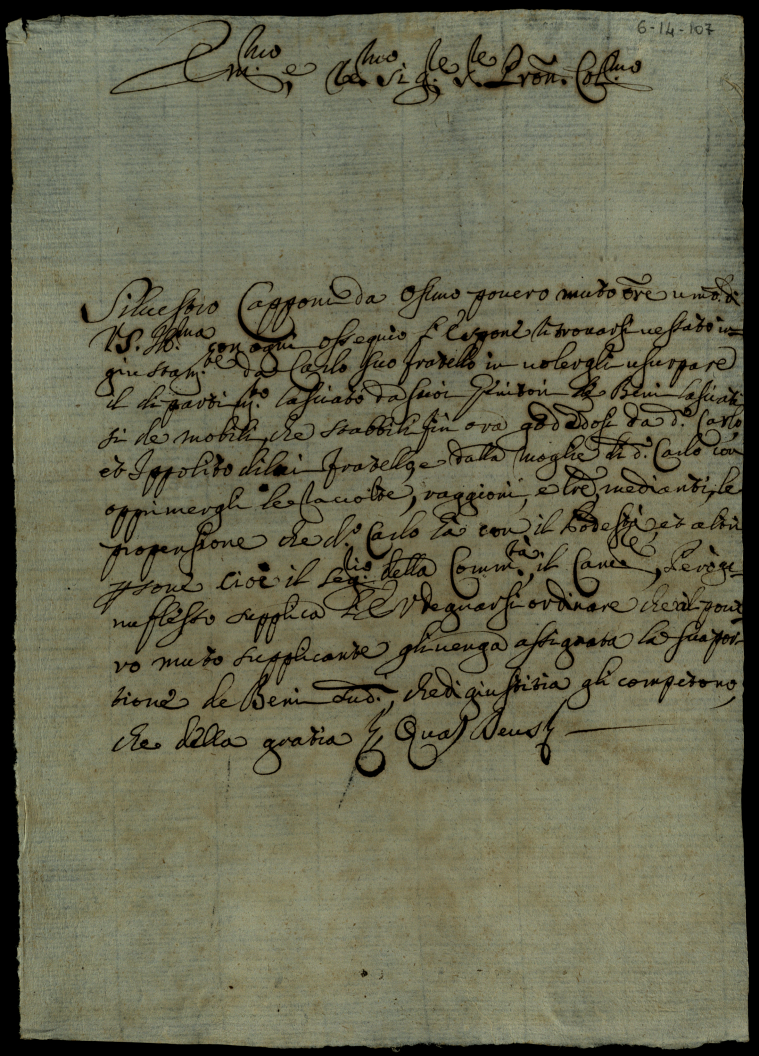 6-14-107
Em.mo e R.mo Sig.re Pron. Col.mo
Silvestro Capponi da Osimo povero muto Ore um.o di
V.S. Ill.ma con ogni ossequio l'espone trovarsi vessato in=
giustam.te da Carlo suo fratello in volergli usurpare
il di parti m.to lasciato da suoi Genitori Beni lasciati
si de mobili, che stabbili fin ora godedosi da d.o Carlo
et Ippolito di lui fratello, e dalla moglie di d.o Carlo con
opprimergli le raccolte, raggioni, e tre, medianti, le
propensione che d.o Carlo hà con il Podestà, et altri
psone cioè il Seg.rio della Comm.tà, il Canc.e, Però ge-
nuflesso supplica V degnarsi ordinare che al pove
ro muto supplicante gli venga assignata la sua por-
tione de Beni sud.i, che di giustitia gli competono,
che della gratia Quas Deus